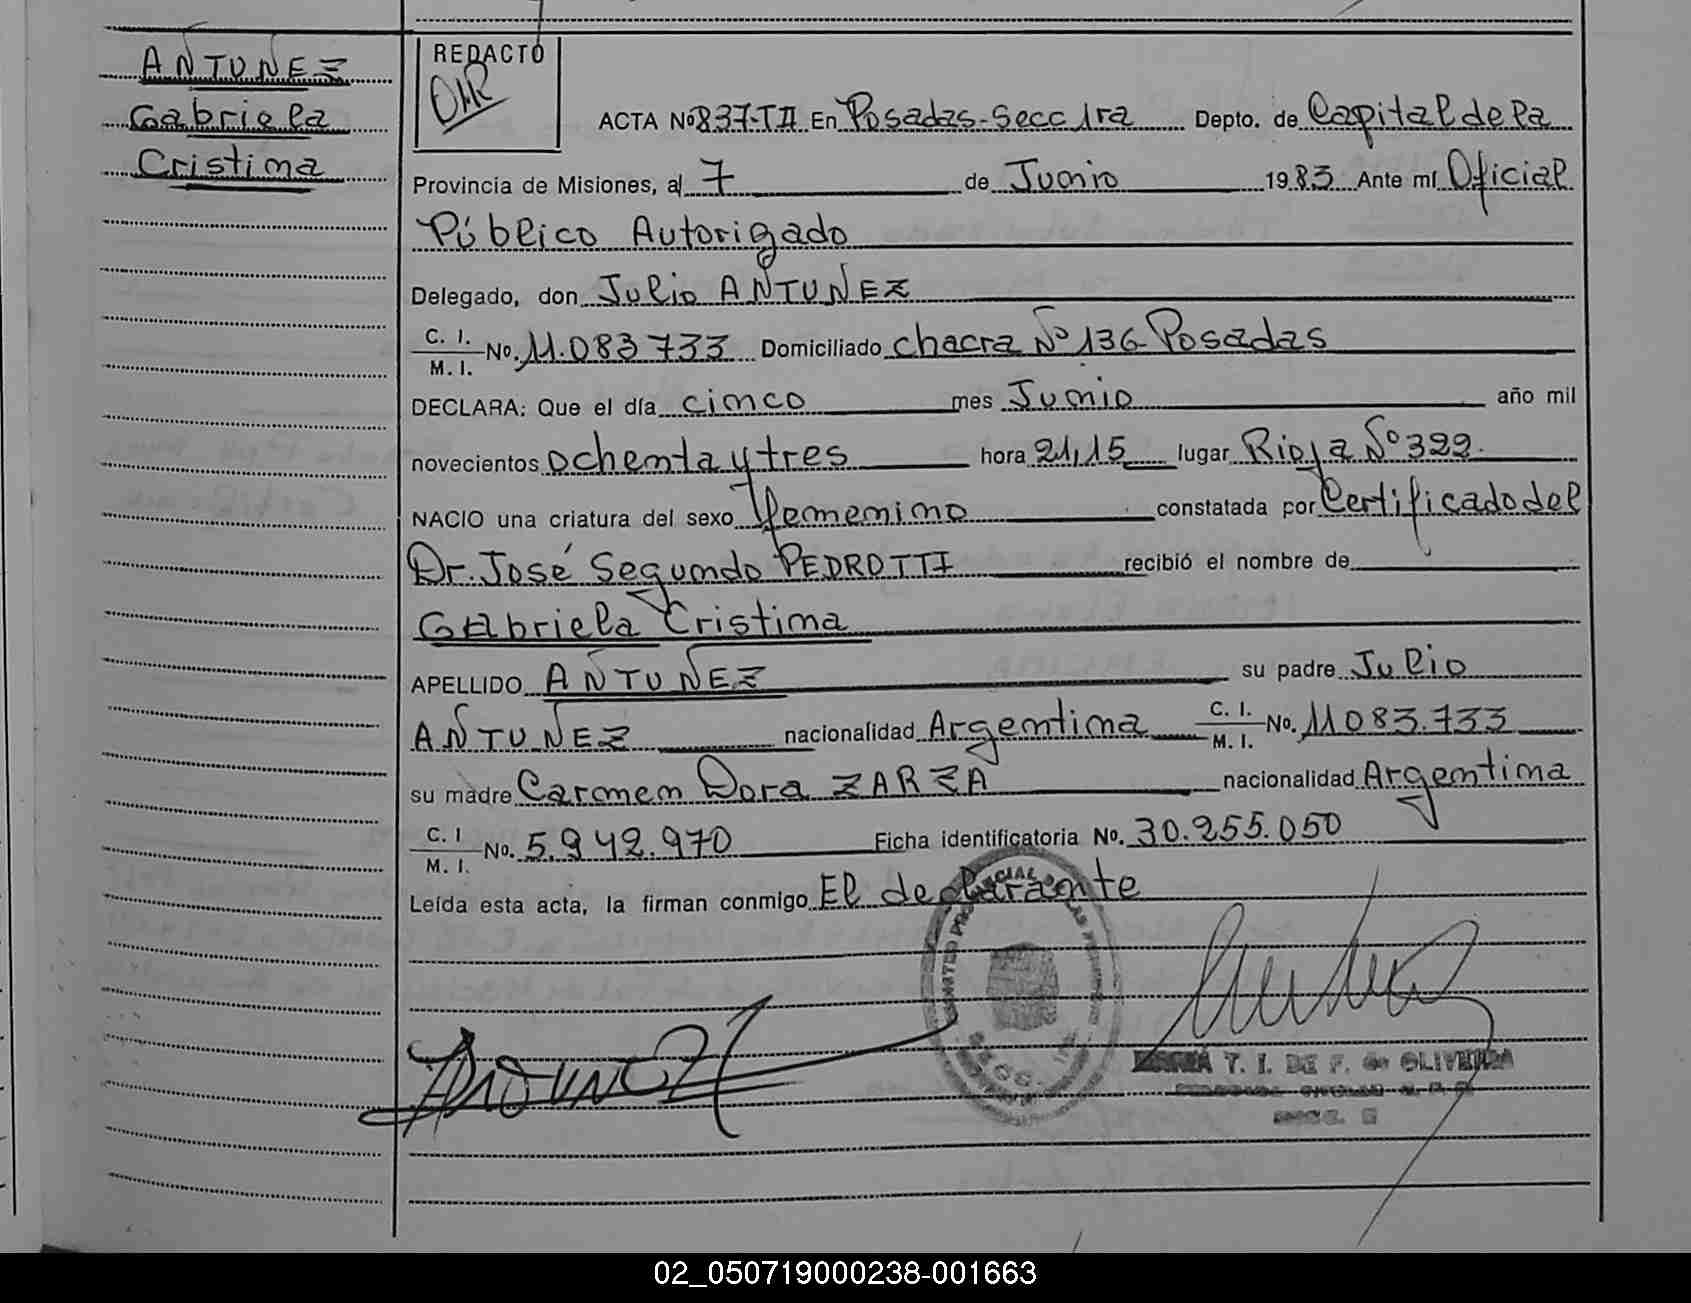 ANTUÑEZ
Gabriela
Cristina
REDACTÓ
ACTA Nº 837-TII En Posadas-Secc 1ra Depto. de Capital de la
Provincia de Misiones, al 7 de Junio 1983 Ante mí Oficial
Público Autorizado
Delegado, don Julio ANTUÑEZ
C. I.
M. I. No. 11.083.733 Domiciliado chacra Nº 136 Posadas
DECLARA: Que el día cinco mes Junio año mil
novecientos ochenta y tres hora 21,15 lugar Rioja Nº 322
NACIO una criatura del sexo femenino constatada por Certificado del
Dr. José Segundo PEDROTTI recibió el nombre de
Gabriela Cristina
APELLIDO ANTUÑEZ su padre Julio
ANTUÑEZ nacionalidad Argentina C. I.
M. I. No. 11083.733
su madre Carmen Dora ZARZA nacionalidad Argentina
C. I
M. I. No. 5.942.970 Ficha identificatoria No. 30.255.050
Leída esta acta, la firman conmigo El declarante
T. I. DE F. de OLIVEIRA
02_050719000238-001663